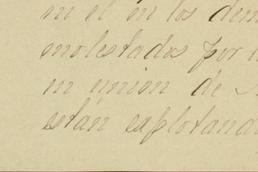 ni el ni los dem
molestados por l
en union de
estan esplotand